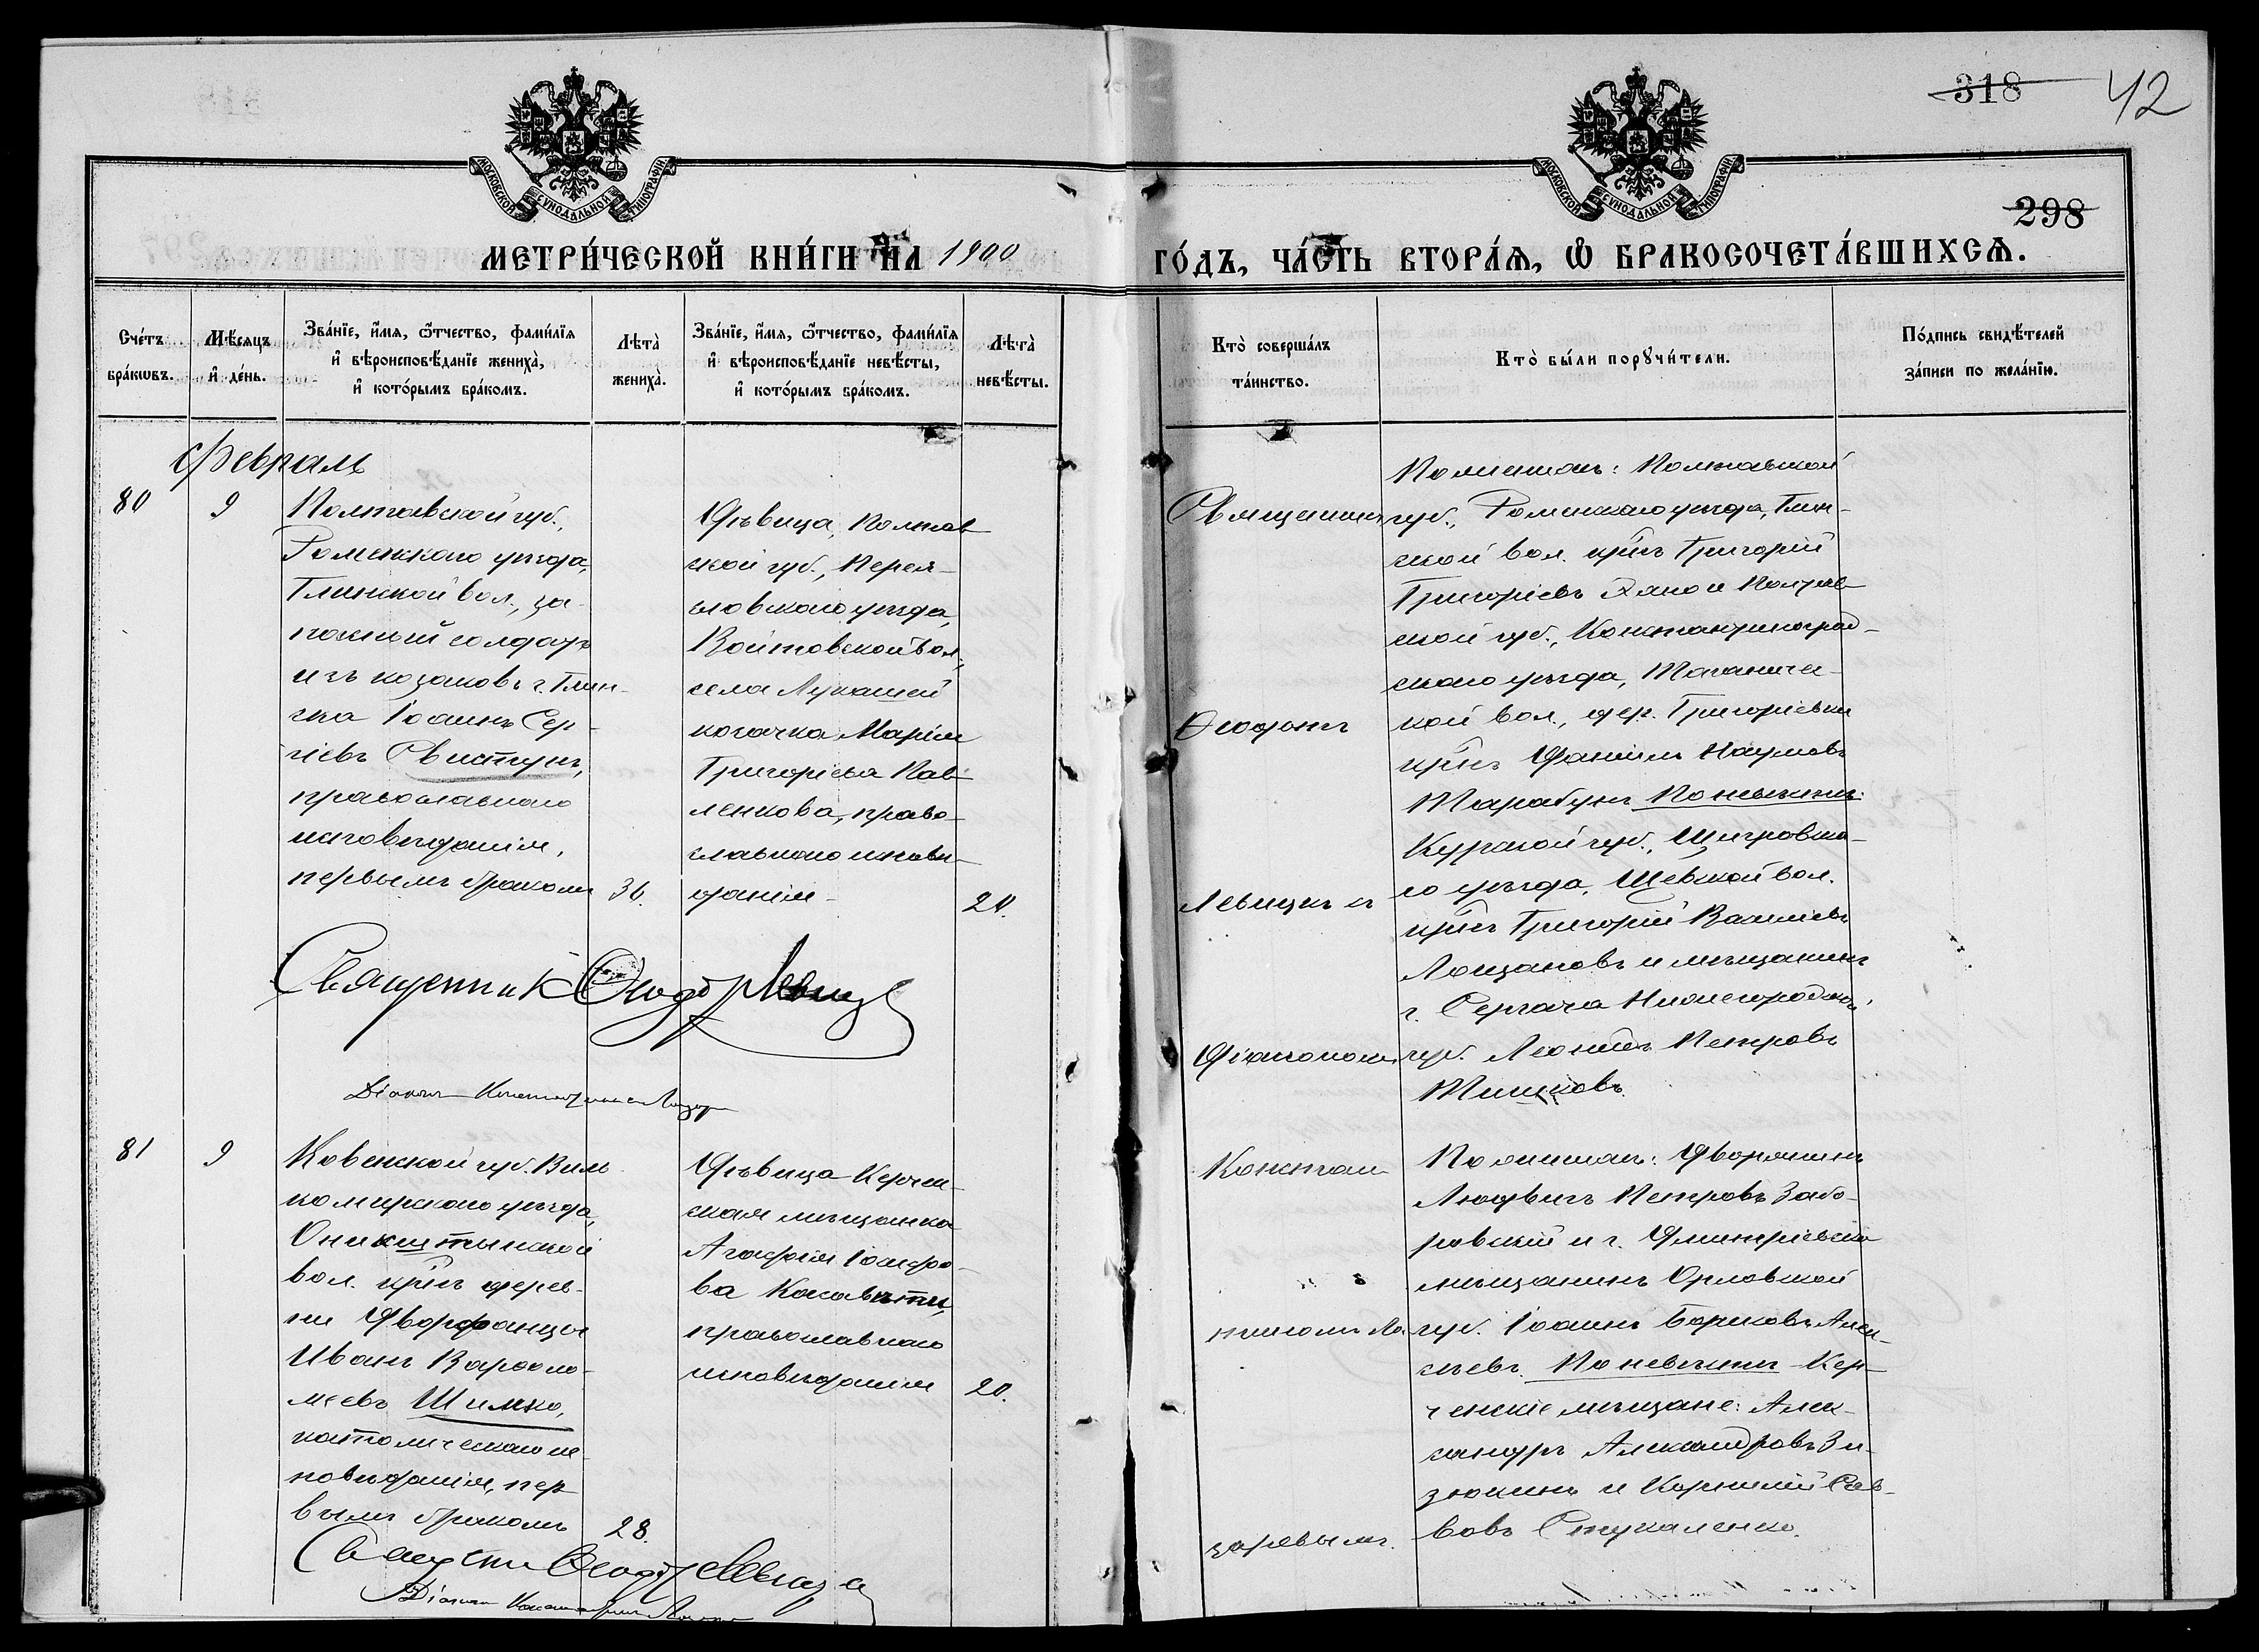 318 42
298
МОСКОВСКОЙ СѴНОДАЛЬНОЙ ТИПОГРАФІИ
МОСКОВСКОЙ СѴНОДАЛЬНОЙ ТИПОГРАФІИ
МЕТРИ́ЧЕСКОЙ КНИ́ГИ НА 1900 ГО́ДЪ, ЧА́СТЬ ВТОРА́Ѧ, Ѡ҆ БРАКОСОЧЕТА́ВШИХСѦ.
Сче́тъ
бра́кѡвъ.
Мѣ́сяцъ
и҆ де́нь.
Зва́нїе, и҆́мя, ѻ҆́тчество, фами́лїя
и҆ вѣроисповѣ́данїе жениха̀,
и҆ кото́рымъ бра́комъ.
Лѣта̀
жениха̀.
Зва́нїе, и҆́мя, ѻ҆́тчество, фами́лїя
и҆ вѣроисповѣ́данїе невѣ́сты,
и҆ кото́рымъ бра́комъ.
Лѣта̀
невѣ́сты.
Кто̀ соверша́лъ
та́инство.
Кто̀ бы́ли порꙋчи́тели.
По́дпись свидѣ́телей
за́писи по жела́нїю.
Февраль
80
9
Полтавской губ.,
Роменскаго уѣзда,
Глинской вол., за-
пасный солдатъ
изъ козаковъ г. Глин-
ска Іоаннъ Сер-
гіевъ Свистунъ,
православнаго
исповѣданія,
первымъ бракомъ
36.
Дѣвица, Полтав
ской губ., Перея-
словскаго уѣзда,
Войтовской вол.,
села Лукашей
козачка Марія
Григорьева Пав-
ленкова, право-
славнаго исповѣ-
данія
20.
Священникъ
Ѳеодоръ
Левицкій
Діакономъ
По женихѣ: Полтавской
губ., Роменскаго уѣзда, Глин-
ской вол. кр̃нъ Григорій
Григорьевъ и Полтав-
ской губ., Константиноград-
скаго уѣзда,
кой вол., дер. Григорьевки
кр̃нъ Даніилъ Наумовъ
Тарабунъ По невѣстѣ:
Курской губ., Щигровска-
го уѣзда, вол.
кр̃нъ Григорій Васильевъ
Лощаковъ и мѣщанинъ
г. Сергача Нижегородской
губ. Леонидъ Петровъ
Тишковъ.
Священникъ Ѳеодоръ Левицкій
Діаконъ Константинъ
81
9
Ковенской губ. Виль
комирскаго уѣзда,
Оникштынской
вол. кр̃нъ дерев-
ни Дворданцы
Иванъ Варѳоло-
меевъ Шимко,
католическаго ис
повѣданія, пер
вымъ бракомъ
28.
Дѣвица Керчен-
ская мѣщанка
Агафія Іосифо-
ва
православнаго
исповѣданія
20.
Констан
тиномъ Ла
заревымъ.
По женихѣ: Дворянинъ
Людвигъ Петровъ Забо-
ровскій и г. Дмитріевска
мѣщанинъ Орловской
губ. Іоаннъ Борисовъ Алек-
сѣевъ. По невѣстѣ Кер-
ченскіе мѣщане: Алек-
сандръ Александровъ Зи-
зюкинъ и Корнилій Сав-
вовъ Стукаленко.
Священникъ Ѳеодоръ Левицкій
Діаконъ Константинъ